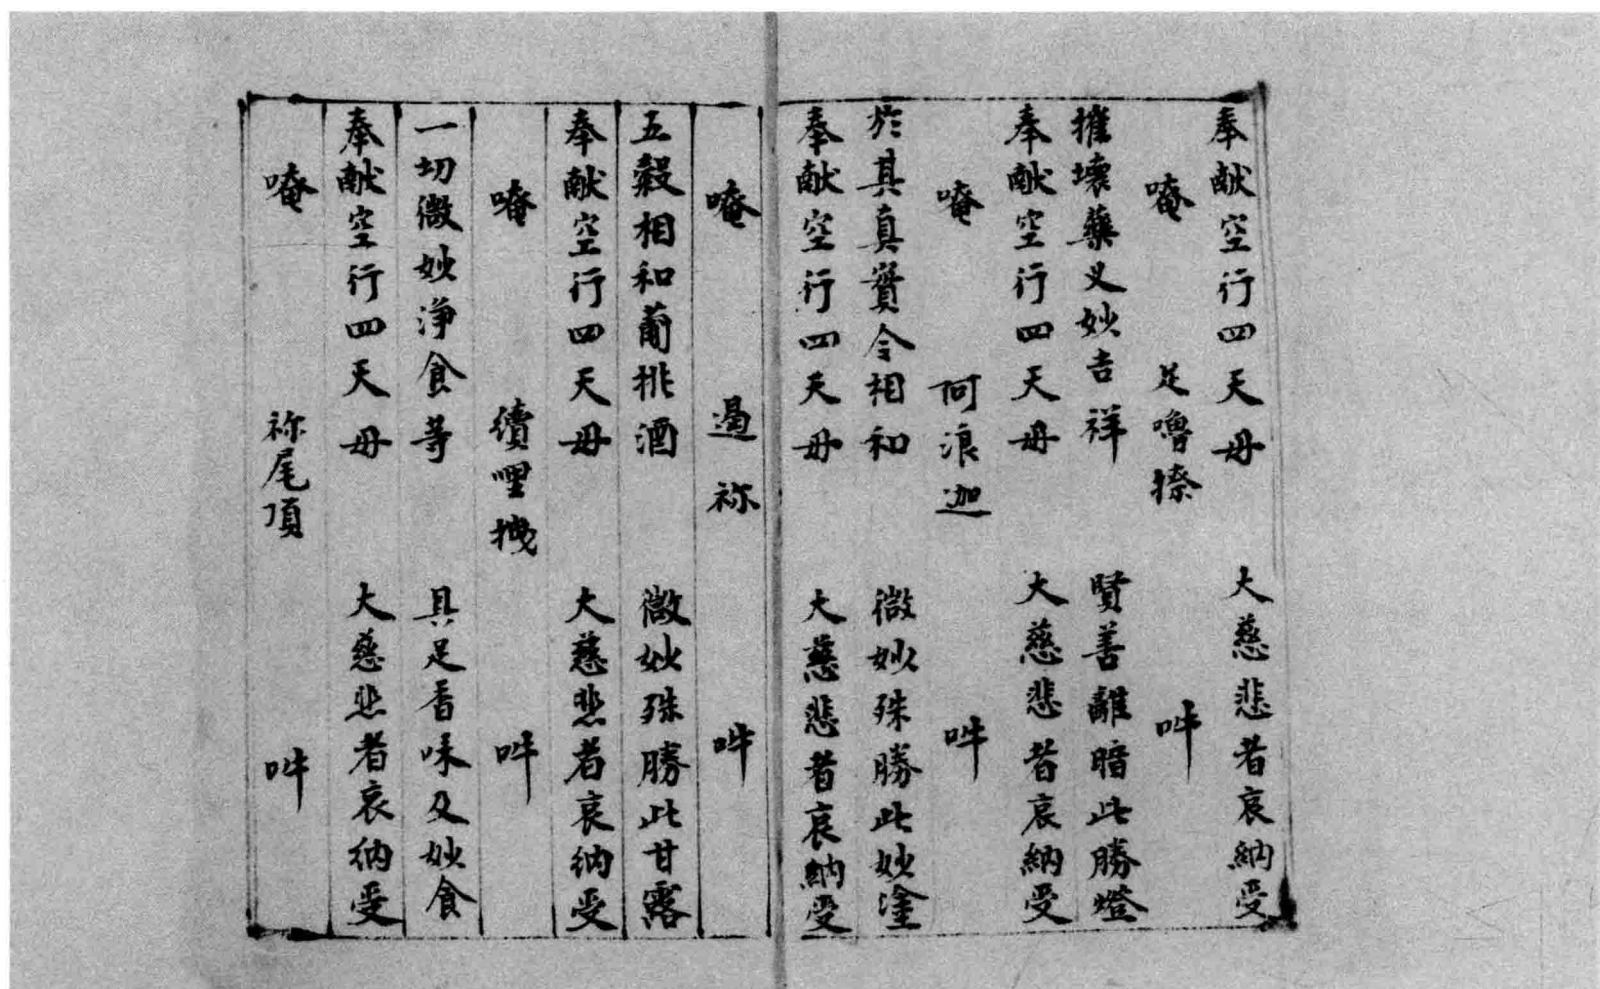 奉献空行四天母　大慈悲者哀納受
唵　足嚕搽　吽
摧壞藥叉妙吉祥　賢善離暗此勝燈
奉献空行四天母　大慈悲者哀納受
唵　阿浪迦　吽
於其真實令相和　微妙殊勝此妙塗
奉献空行四天母　大慈悲者哀納受
唵　遏祢　吽
五糓相和葡桃酒　微妙殊勝此甘露
奉献空行四天母　大慈悲者哀納受
唵　續哩拽　吽
一切微妙淨食等　具足香味及妙食
奉献空行四天母　大慈悲者哀納受
唵　祢尾頂　吽